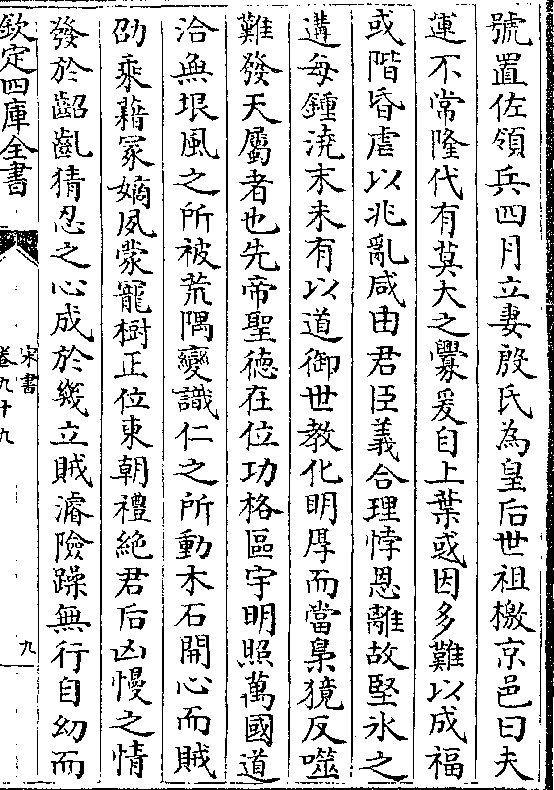 號置佐領兵四月立妻殷氏為皇后世祖檄京邑曰夫
運不常隆代有莫大之釁爰自上葉或因多難以成福
或階昏虐以兆亂咸由君臣義合理悖恩離故堅氷之
遘每鍾澆末未有以道御世教化明厚而當梟獍反噬
難發天屬者也先帝聖德在位功格區宇明照萬國道
洽無垠風之所被荒隅變識仁之所動木石開心而賊
劭乘藉冢嫡夙蒙寵樹正位東朝禮絶君后凶慢之情
發於齠齓猜忍之心成於幾立賊濬險躁無行自幼而
欽定四庫全書
宋書
卷九十九
九